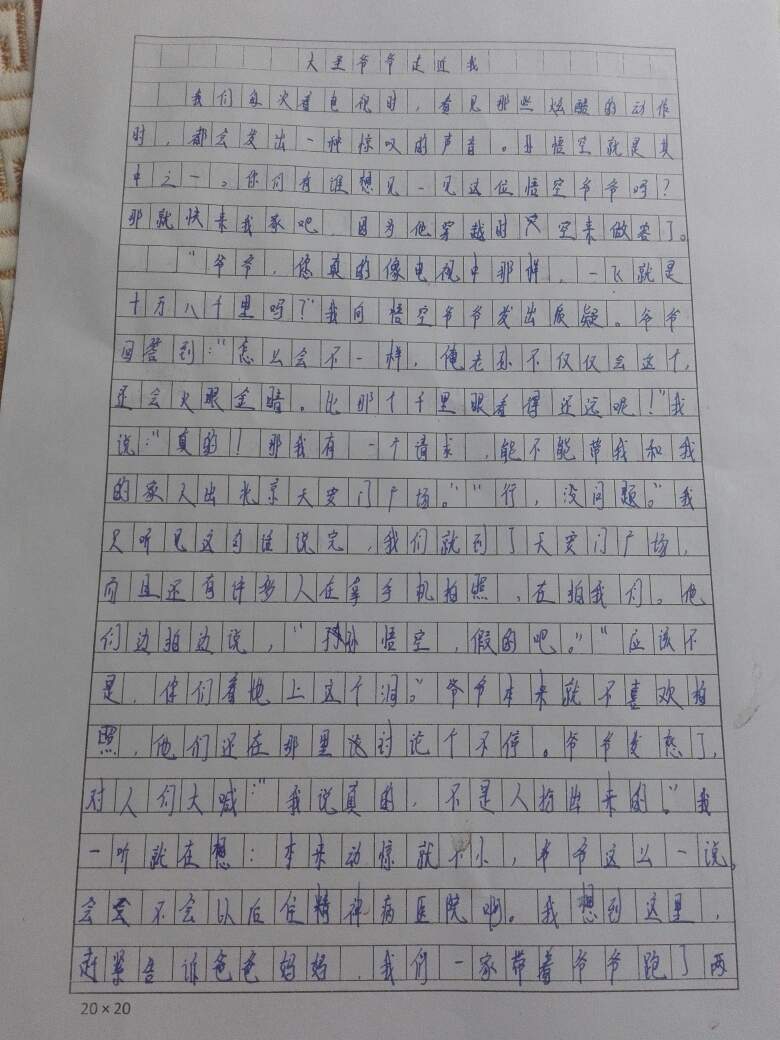 大圣爷爷走近我
我们每次看电视时，看见那些炫酷的动作
时，都会发出一种惊叹的声音。孙悟空就是其
中之一。你们有谁想见一见这位悟空爷爷吗？
那就快来我家吧，因为他穿越时空来做客了。
“爷爷，您真的像电视中那样，一飞就是
十万八千里吗？”我向悟空爷爷发出质疑。爷爷
回答到：“怎么会不一样，俺老孙不仅仅会这个，
还会火眼金睛。比那个千里眼看得还远呢！”我
说：“真的！那我有一个请求，能不能带我和我
的家人出北京天安门广场。”“行，没问题。”我
只听见这句话说完，我们就到了天安门广场，
而且还有许多人在拿手机拍照，在拍我们。他
们边拍边说，“孙悟空，假的吧。”“应该不
是，你们看地上这个洞。”爷爷本来就不喜欢拍
照，他们还在那里谈讨论个不停。爷爷发怒了，
对人们大喊：“我说真的，不是人扮出来的。”我
一听就在想：本来动惊就不小，爷爷这么一说。
会不会以后住精神病医院啊。我想到这里，
赶紧告诉爸爸妈妈，我们一家带着爷爷跑了两
20×20